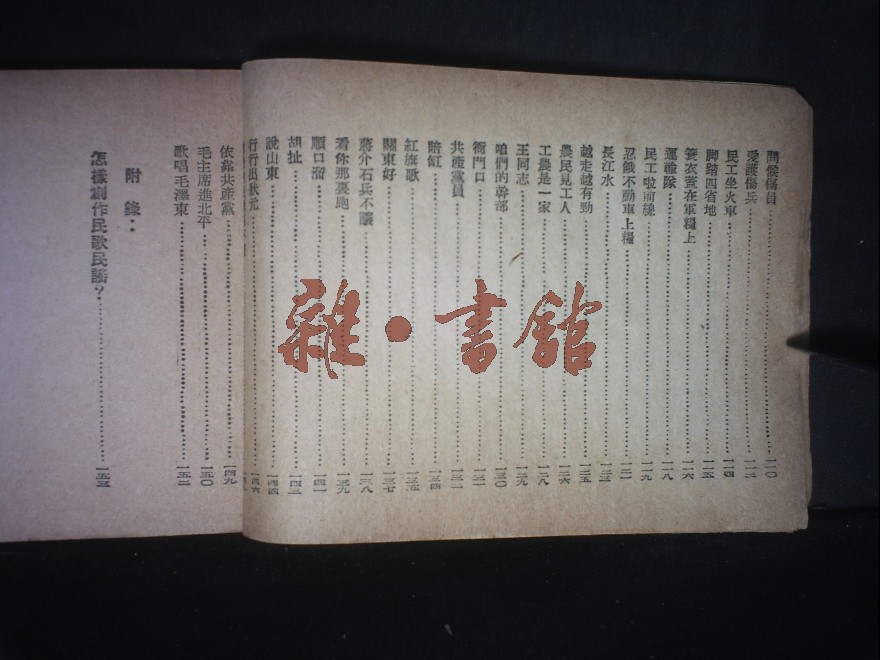 問候傷員……一一〇
愛護傷兵……一一二
民工坐火車……一一四
脚踏四省地……一一五
簑衣蓋在軍糧上……一一六
運輸隊……一一八
民工啦前線……一一九
忍餓不動車上糧……一二一
長江水……一二三
越走越有勁……一二五
農民見工人……一二六
工農是一家……一二八
王同志……一二九
咱們的幹部……一三〇
衙門口……一三一
共產黨員……一三二
賠缸……一三四
紅旗歌……一三五
關東好……一三七
蔣介石兵不讓……一三八
看你那裏跑……一三九
順口溜……一四一
胡扯……一四三
說山東……一四四
行行出狀元……一四六
依靠共產黨……一四九
毛主席進北平……一五〇
歌唱毛澤東……一五二
附錄：
怎樣創作民歌民謠？……一五三
雜·書館